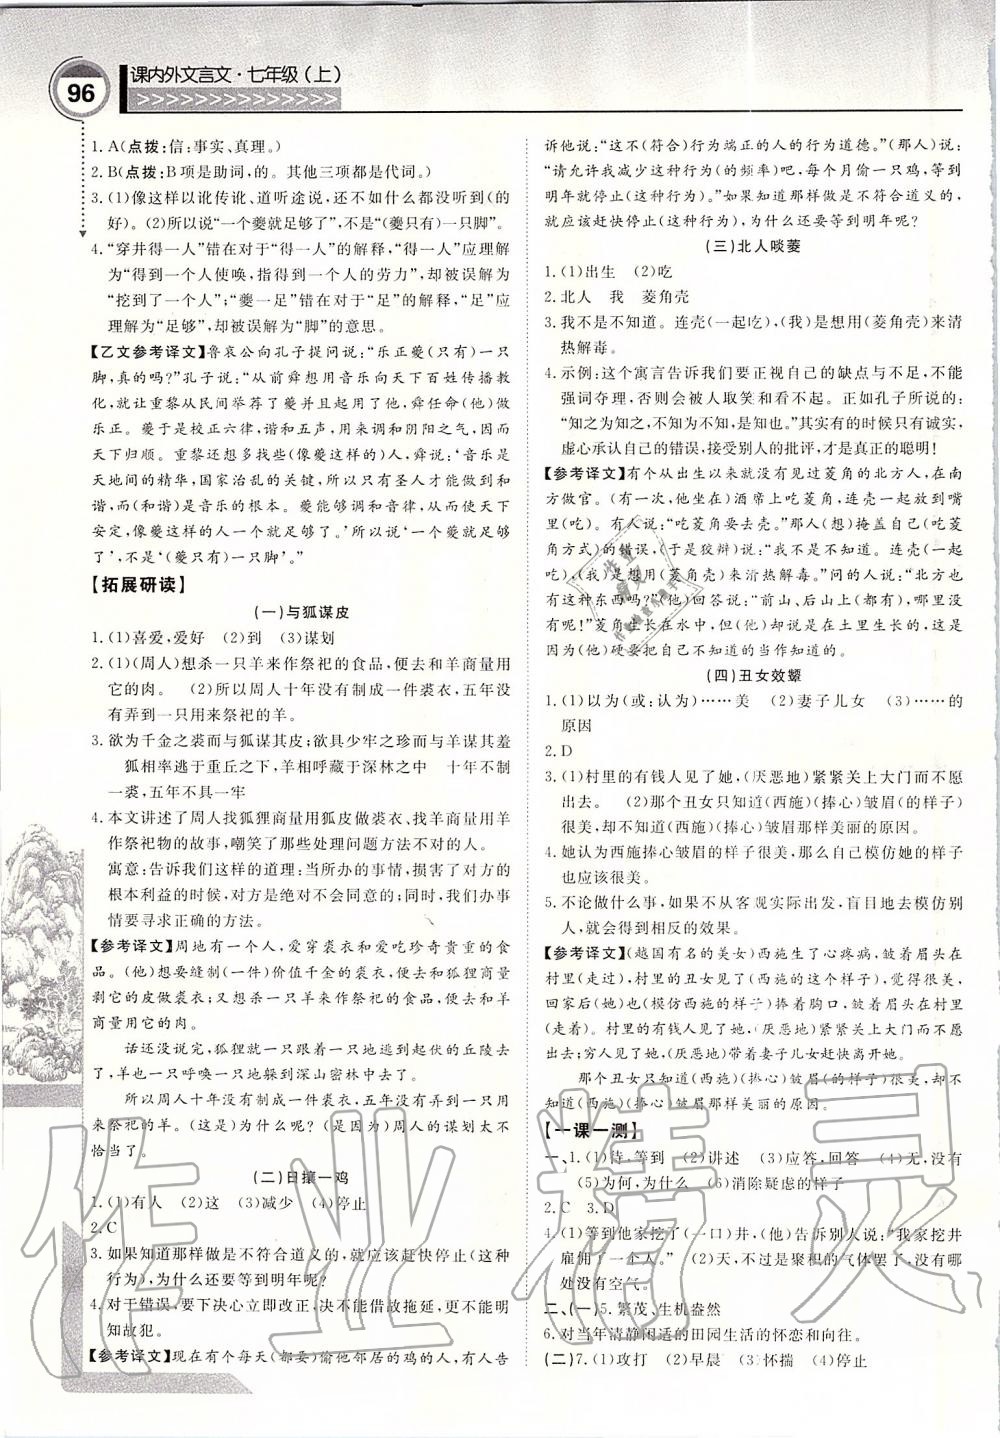 96
课内外文言文·七年级(上)
1. A(点拨:信:事实、真理。)
2. B(点拨:B项是助词,的。其他三项都是代词。)
3. (1)像这样以讹传讹、道听途说,还不如什么都没听到(的好)。(2)所以说“一个夔就足够了”,不是“(夔只有)一只脚”。
4. “穿井得一人”错在对于“得一人”的解释,“得一人”应理解为“得到一个人使唤,指得到一个人的劳力”,却被误解为“挖到了一个人”;“夔一足”错在对于“足”的解释,“足”应理解为“足够”,却被误解为“脚”的意思。
【乙文参考译文】鲁哀公向孔子提问说:“乐正夔(只有)一只
脚,真的吗?”孔子说:“从前舜想用音乐向天下百姓传播教
化,就让重黎从民间举荐了夔并且起用了他,舜任命(他)做
乐正。夔于是校正六律,谐和五声,用来调和阴阳之气,因而
天下归顺。重黎还想多找些像夔这样的人,舜说:‘音乐是
天地间的精华,国家治乱的关键,所以只有圣人才能做到和
谐,而和谐是音乐的根本。夔能够调和音律,从而使天下
安定,像夔这样的人一个就足够了。’所以说‘一个夔就足够
了’,不是‘(夔只有)一只脚’。”
【拓展研读】
(一)与狐谋皮
1. (1)喜爱,爱好 (2)到 (3)谋划
2. (1)(周人)想杀一只羊来作祭祀的食品,便去和羊商量用
它的肉。 (2)所以周人十年没有制成一件裘衣,五年没
有弄到一只用来祭祀的羊。
3. 欲为千金之裘而与狐谋其皮;欲具少牢之珍而与羊谋其羞
狐相率逃于重丘之下,羊相呼藏于深林之中 十年不制
一裘,五年不具一牢
4. 本文讲述了周人找狐狸商量用狐皮做裘衣、找羊商量用羊
作祭祀物的故事,嘲笑了那些处理问题方法不对的人。
寓意:告诉我们这样的道理:所办的事情,损害了对方的
根本利益的时候,对方是不会同意的;同时,我们办事
情要寻求正确的方法。
【参考译文】周地有一个人,爱穿裘衣和爱吃珍奇贵重的食
品。(他)想要缝制(一件)价值千金的裘衣,便去和狐狸商量
剥它的皮做裘衣;又想杀一只羊来作祭祀的食品,便去和羊
商量用它的肉。
话还没说完,狐狸就一只跟着一只地逃到起伏的丘陵去
了,羊一只呼唤一只地躲到深山密林中去了。
所以周人十年没有制成一件裘衣,五年没有弄到一只用
来祭祀的羊。(这是)为什么呢?(是因为)周人的谋划太不
恰当了!
(二)日攘一鸡
1. (1)有人 (2)这 (3)减少 (4)停止
2. C
3. 如果知道那样做是不符合道义的,就应该赶快停止(这种
行为),为什么还要等到明年呢?
4. 对于错误,要下决心立即改正,决不能借故拖延,更不能明
知故犯。
【参考译文】现在有个每天(都要)偷他邻居的鸡的人,有人告
诉他说:“这不(符合)行为端正的人的行为道德。”(那人)说:
“请允许我减少(这种行为)的(频率)吧,每个月偷一只鸡,等到
明年就停止(这种行为)。”如果知道那样做是不符合道义的,
就应该赶快停止(这种行为),为什么还要等到明年呢?
(三)北人啖菱
1. (1)出生 (2)吃
2. 北人 我 菱角壳
3. 我不是不知道。连壳(一起吃),(我)是想用(菱角壳)来清
热解毒。
4. 示例:这个寓言告诉我们要正视自己的缺点与不足,不能
强词夺理,否则就会被人取笑和看不起。正如孔子所说的:
“知之为知之,不知为不知,是知也。”其实有的时候只有诚实,
虚心承认自己的错误,接受别人的批评,才是真正的聪明!
【参考译文】有个从出生以来就没有见过菱角的北方人,在南
方做官。(有次,他)在酒席上吃菱角,(他)连壳一起放到嘴
里(吃)。有人说:“吃菱角要去壳。”(那人)(想)掩盖自己(吃菱
角方式)的错误,(于是狡辩)说:“我不是不知道。连壳(一起
吃),(我)是想用(菱角壳)来清热解毒。”问的人说:“北方也
有这种东西吗?”(他)回答说:“前山、后山上(都有),哪里没
有呢!”菱角生长在水中,但(他)却说是在土里生长的,这是
因为(他)硬要把自己不知道的当作知道的。
(四)丑女效颦
1. (1)以为(或:认为)……美 (2)妻子儿女 (3)……的
原因
2. D
3. (1)村里的有钱人见了她,(厌恶地)紧紧关上大门而不愿
出去。 (2)那个丑女只知道(西施)(捧心)皱眉(的样子)
很美,却不知道(西施)(捧心)皱眉那样美丽的原因。
4. 她认为西施捧心皱眉的样子很美,那么自己模仿她的样子
也应该很美。
5. 不论做什么事,如果不从客观实际出发,盲目地去模仿别
人,就得不到相应的效果。
【参考译文】(越国有名的美女)西施生了心疼病,皱着眉头在
村里(走过),村里的丑女见了(西施的这个样子),觉得很美,
回家后(也)(模仿西施的样子)捧着胸口,皱着眉头在村里
(走着)。村里的有钱人见了她,(厌恶地)紧紧关上大门而不愿
出去;穷人见了她,(厌恶地)带着妻子儿女赶快离开她。
那个丑女只知道(西施)(捧心)皱眉(的样子)很美,却不
知道(西施)(捧心)皱眉那样美丽的原因。
【一课一测】
一、1. (1)待,等到 (2)讲述 (3)应答,回答 (4)……
(5)为何,为什么 (6)消除疑虑的样子
2. C 3. D
4. (1)等到他家挖了(一口)井,(他)告诉别人说:“我家挖井
雇佣了一个人。” (2)天,不过是聚积的气体罢了,没有哪
处没有空气。
二、(一)5. 繁茂、生机盎然
6. 对当年清静闲适的田园生活的怀恋和向往。
(二)7. (1)攻打 (2)早晨 (3)怀揣 (4)停止
作业精灵